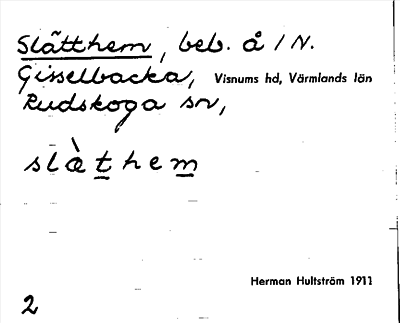 Slätthem, beb. å /N.
Gisselbacka, Visnums hd, Värmlands län
Rudskoga sn,
slὰt̲hem̲
Herman Hultström 1911
2